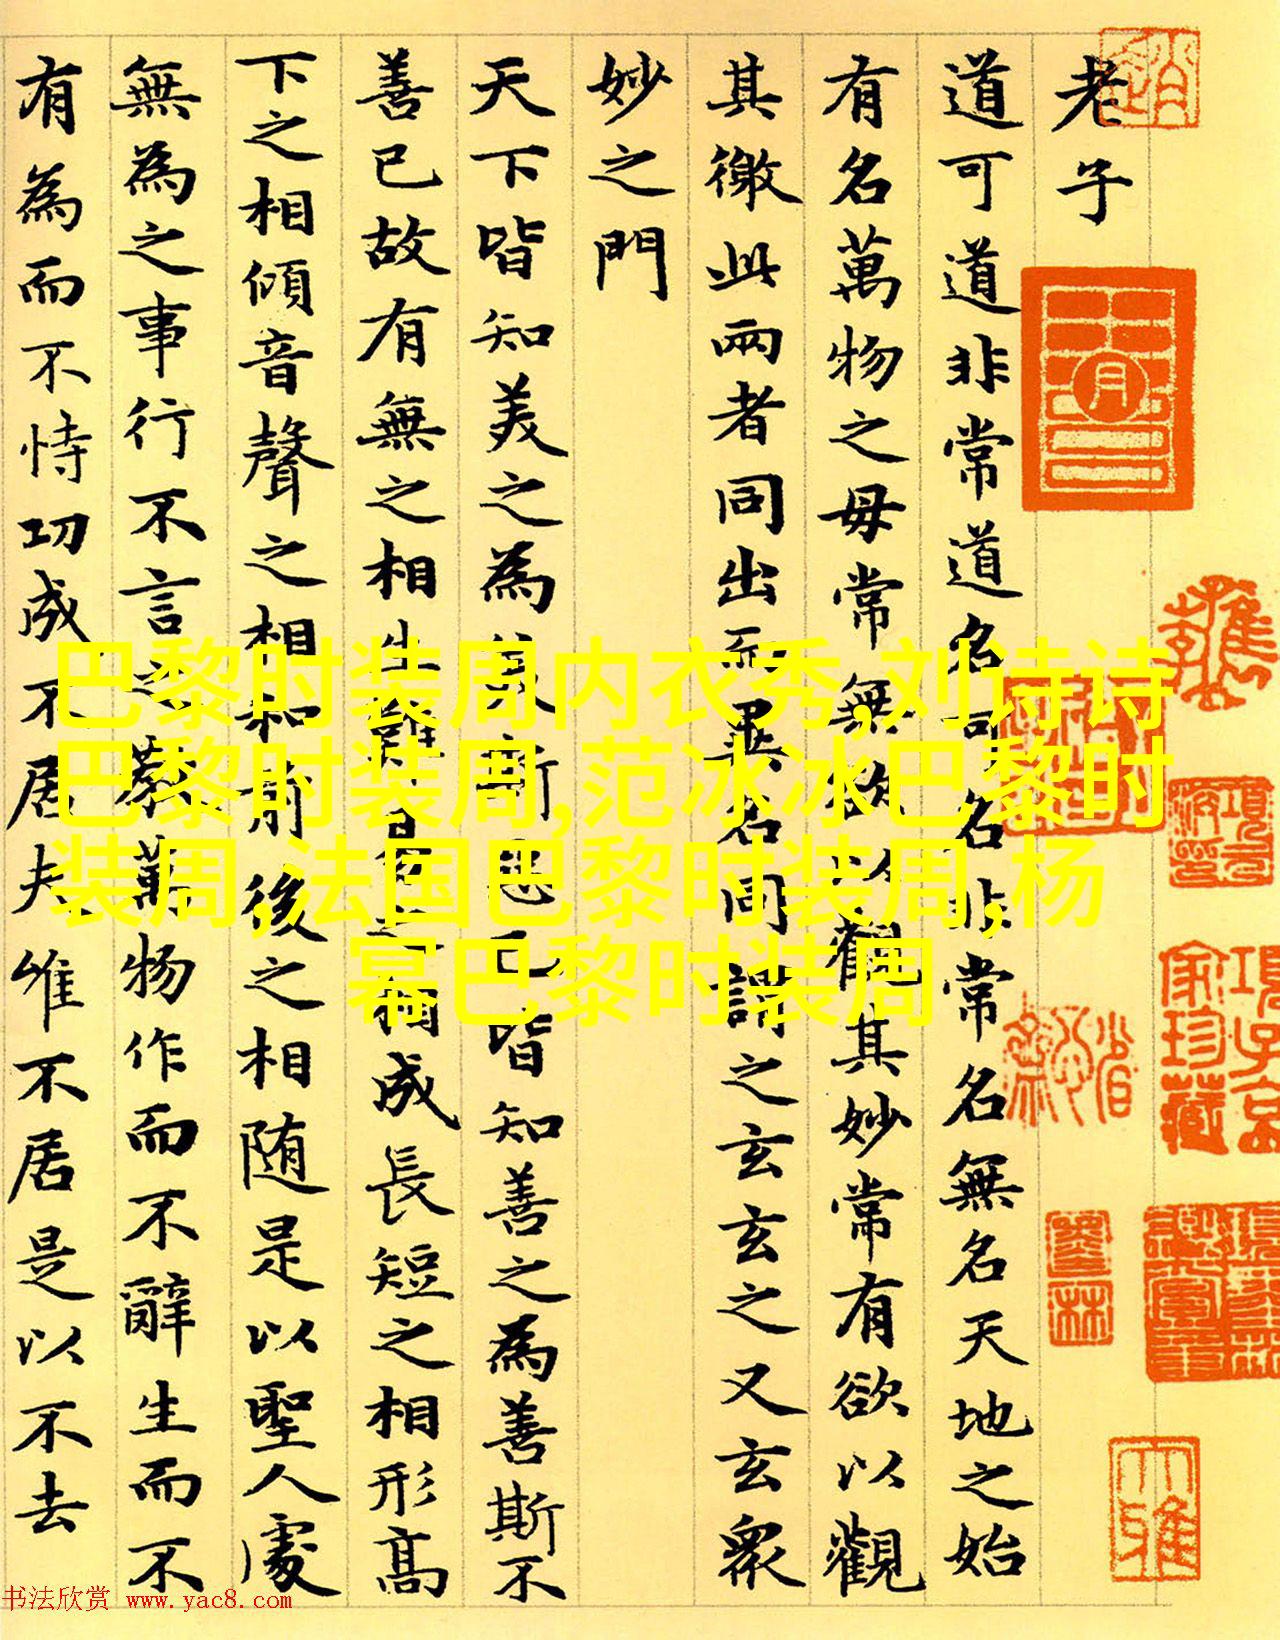 老子
道可道非常道名可名非常名無名天地之始
有名萬物之母常無欲以觀其妙常有欲以觀
其徼此兩者同出而異名同謂之玄玄之又玄衆
妙之門
天下皆知美之為美斯惡已皆知善之為善斯不
善已故有無之相生難易之相成長短之相形高
下之相傾音聲之相和前後之相随是以聖人處
無為之事行不言之教萬物作而不辭生而不
有為而不恃功成不居夫唯不居是以不去
巴黎时装周内衣秀,刘诗诗
巴黎时装周,范冰冰巴黎时
装周,法国巴黎时装周,杨
幂巴黎时装周
項子京家珍藏
书法欣赏 www.yac8.com